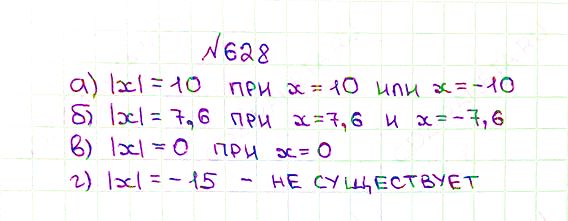 №628
а) |x| = 10 ПРИ x = 10 ИЛИ x = -10
б) |x| = 7,6 ПРИ x = 7,6 И x = -7,6
в) |x| = 0 ПРИ x = 0
г) |x| = -15 - НЕ СУЩЕСТВУЕТ